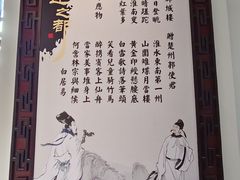 之都
城樓
日登眺
時嗟跎
淮南叟
紅葉多
應物
贈楚州郭使君
淮水東南第一州
山圍雉堞月當樓
黃金印綬懸腰底
白雪歌詩落筆頭
笑看兒童騎竹馬
醉攜賓客上仙舟
當家美事堆身上
何啻林宗與細侯
白居易